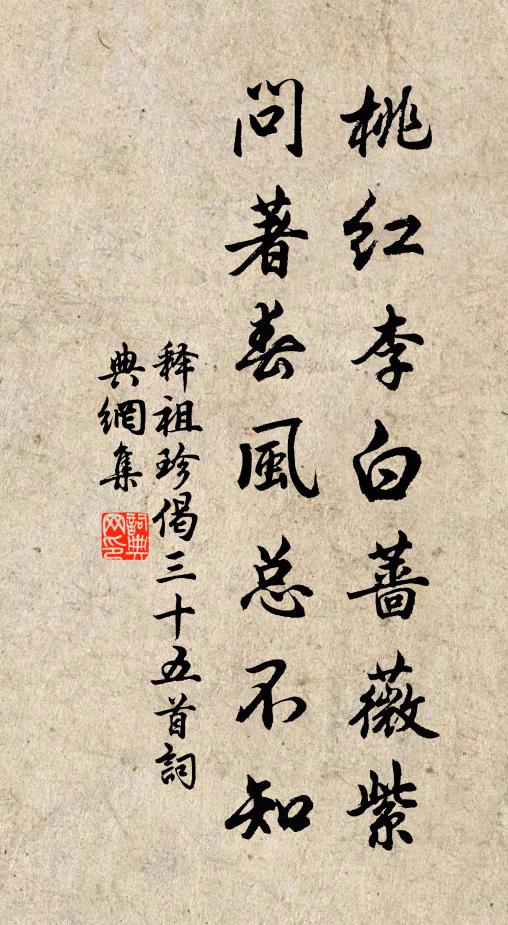 桃红李白蔷薇紫
問著春風总不知
释祖珍偈三十五首詞
典網集
詞典
网印